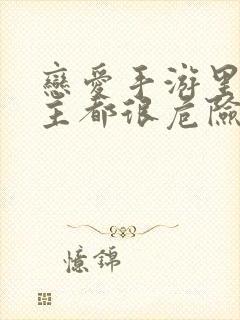 戀愛手游里
主都很危險
憶錦